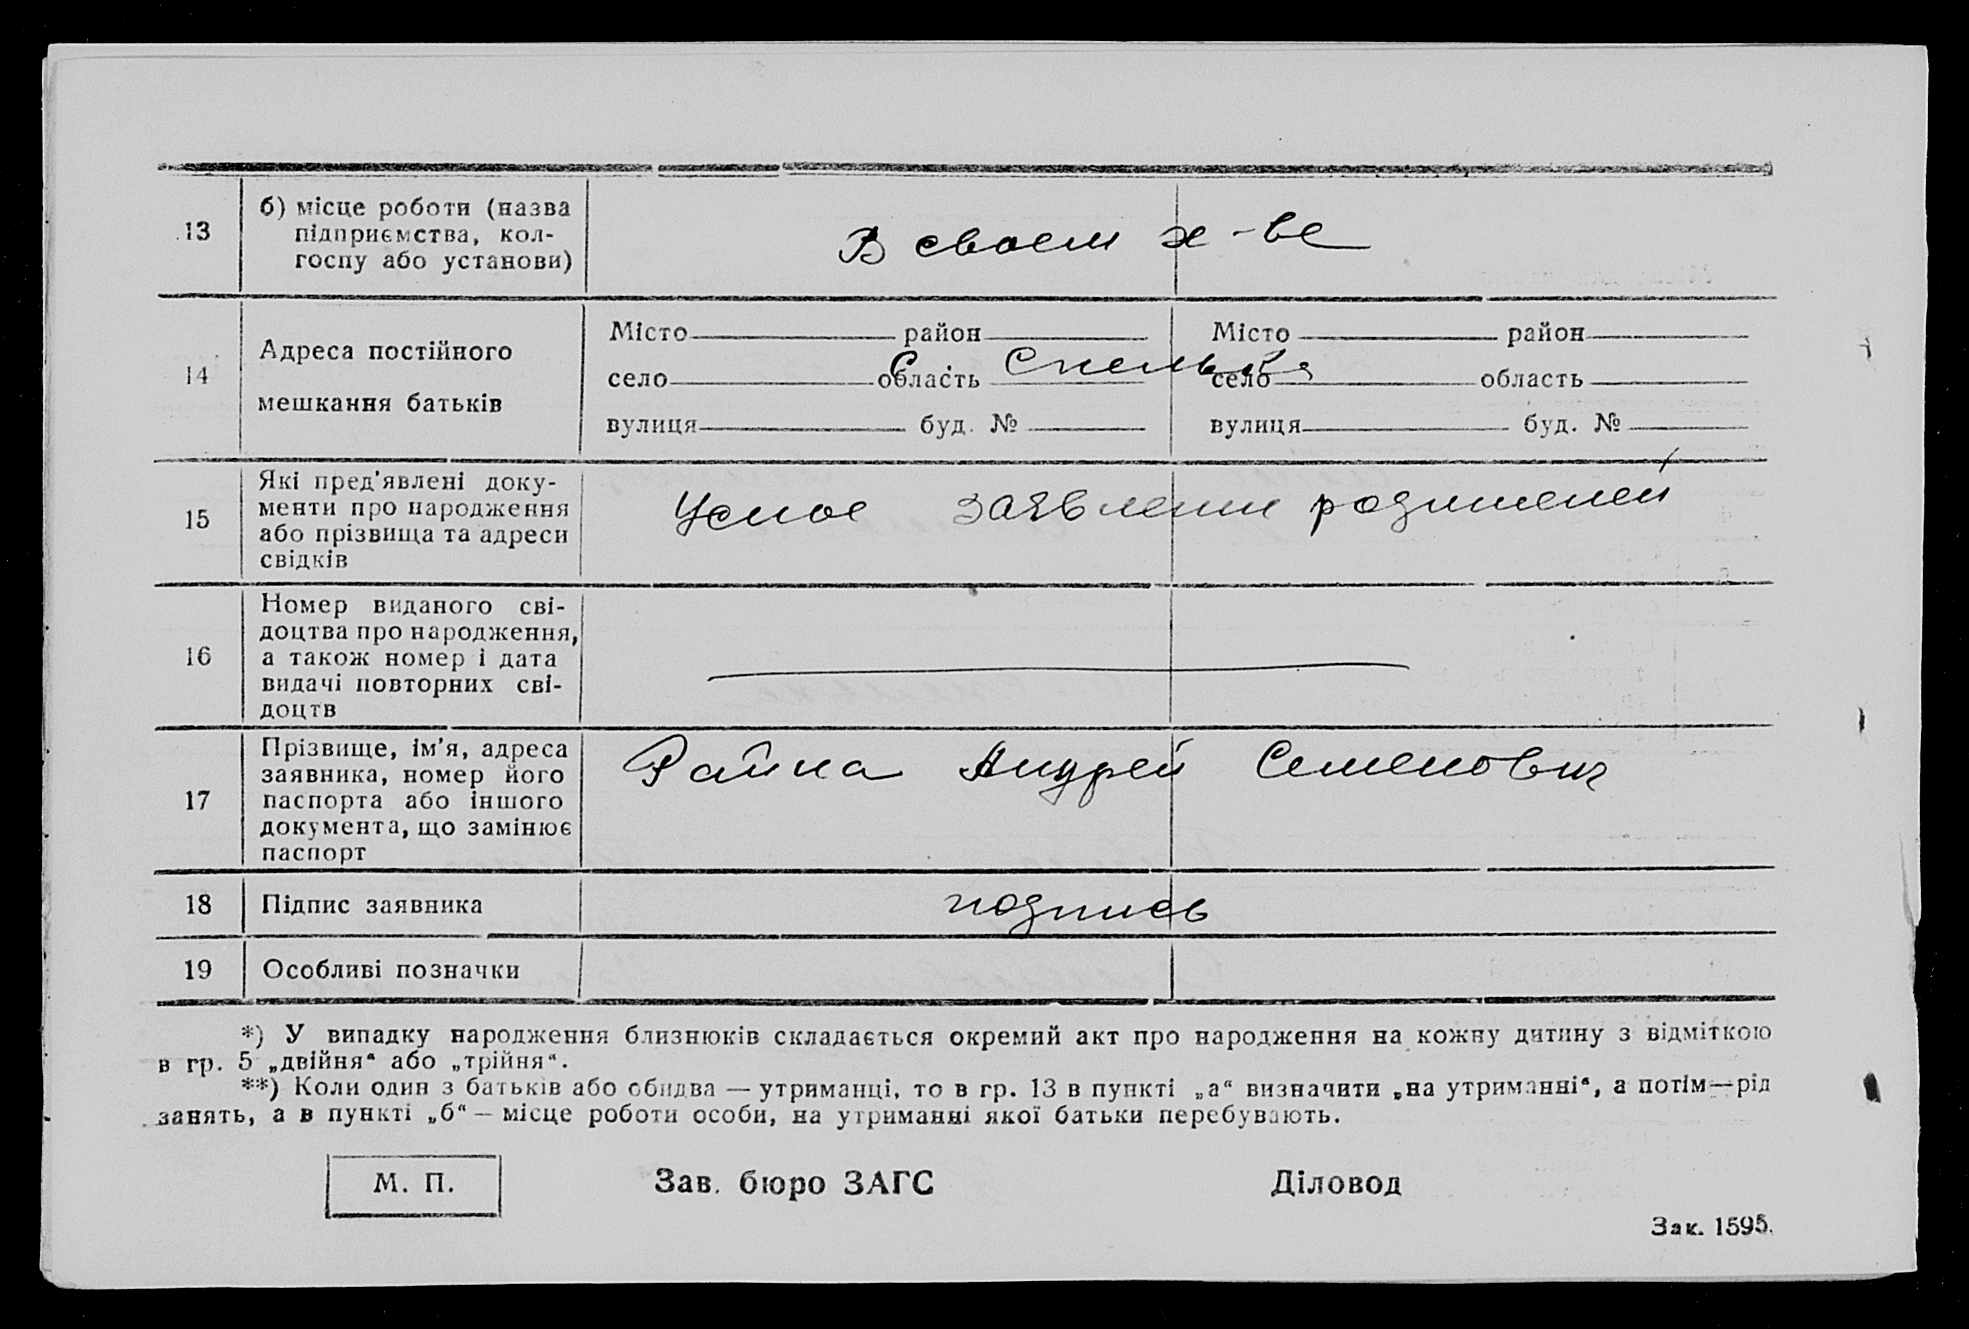 13
б) місце роботи (назва
підприємства, кол-
госпу або установи)
В своем х-ве
14
Адреса постійного
мешкання батьків
Місто район
село область
вулиця буд. №
Місто район
село область
вулиця буд. №
с.
15
Які пред'явлені доку-
менти про народження
або прізвища та адреси
свідків
Усное заявление родителей
16
Номер виданого сві-
доцтва про народження,
а також номер і дата
видачі повторних сві-
доцтв
17
Прізвище, ім'я, адреса
заявника, номер його
паспорта або іншого
документа, що замінює
паспорт
Райна Андрей Семенович
18
Підпис заявника
подпись
19
Особливі позначки
*) У випадку народження близнюків складається окремий акт про народження на кожну дитину з відміткою
в гр. 5 „двійня“ або „трійня“.
**) Коли один з батьків або обидва — утриманці, то в гр. 13 в пункті „а“ визначити „на утриманні“, а потім—рід
занять, а в пункті „б“ — місце роботи особи, на утриманні якої батьки перебувають.
М. П.
Зав. бюро ЗАГС
Діловод
Зак. 1595.